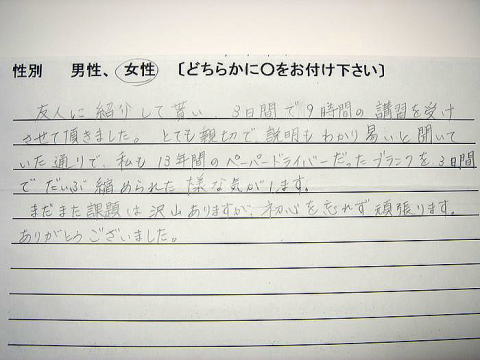 性別 男性、女性 〔どちらかに〇をお付け下さい〕
友人に紹介して貰い 3日間で9時間の講習を受け
させて頂きました。とても親切で説明もわかり易いと聞いて
いた通りで、私も13年間のペーパードライバーだったブランクを3日間
でだいぶ縮められた様な気がします。
まだまだ課題は沢山ありますが、初心を忘れず頑張ります。
ありがとうございました。